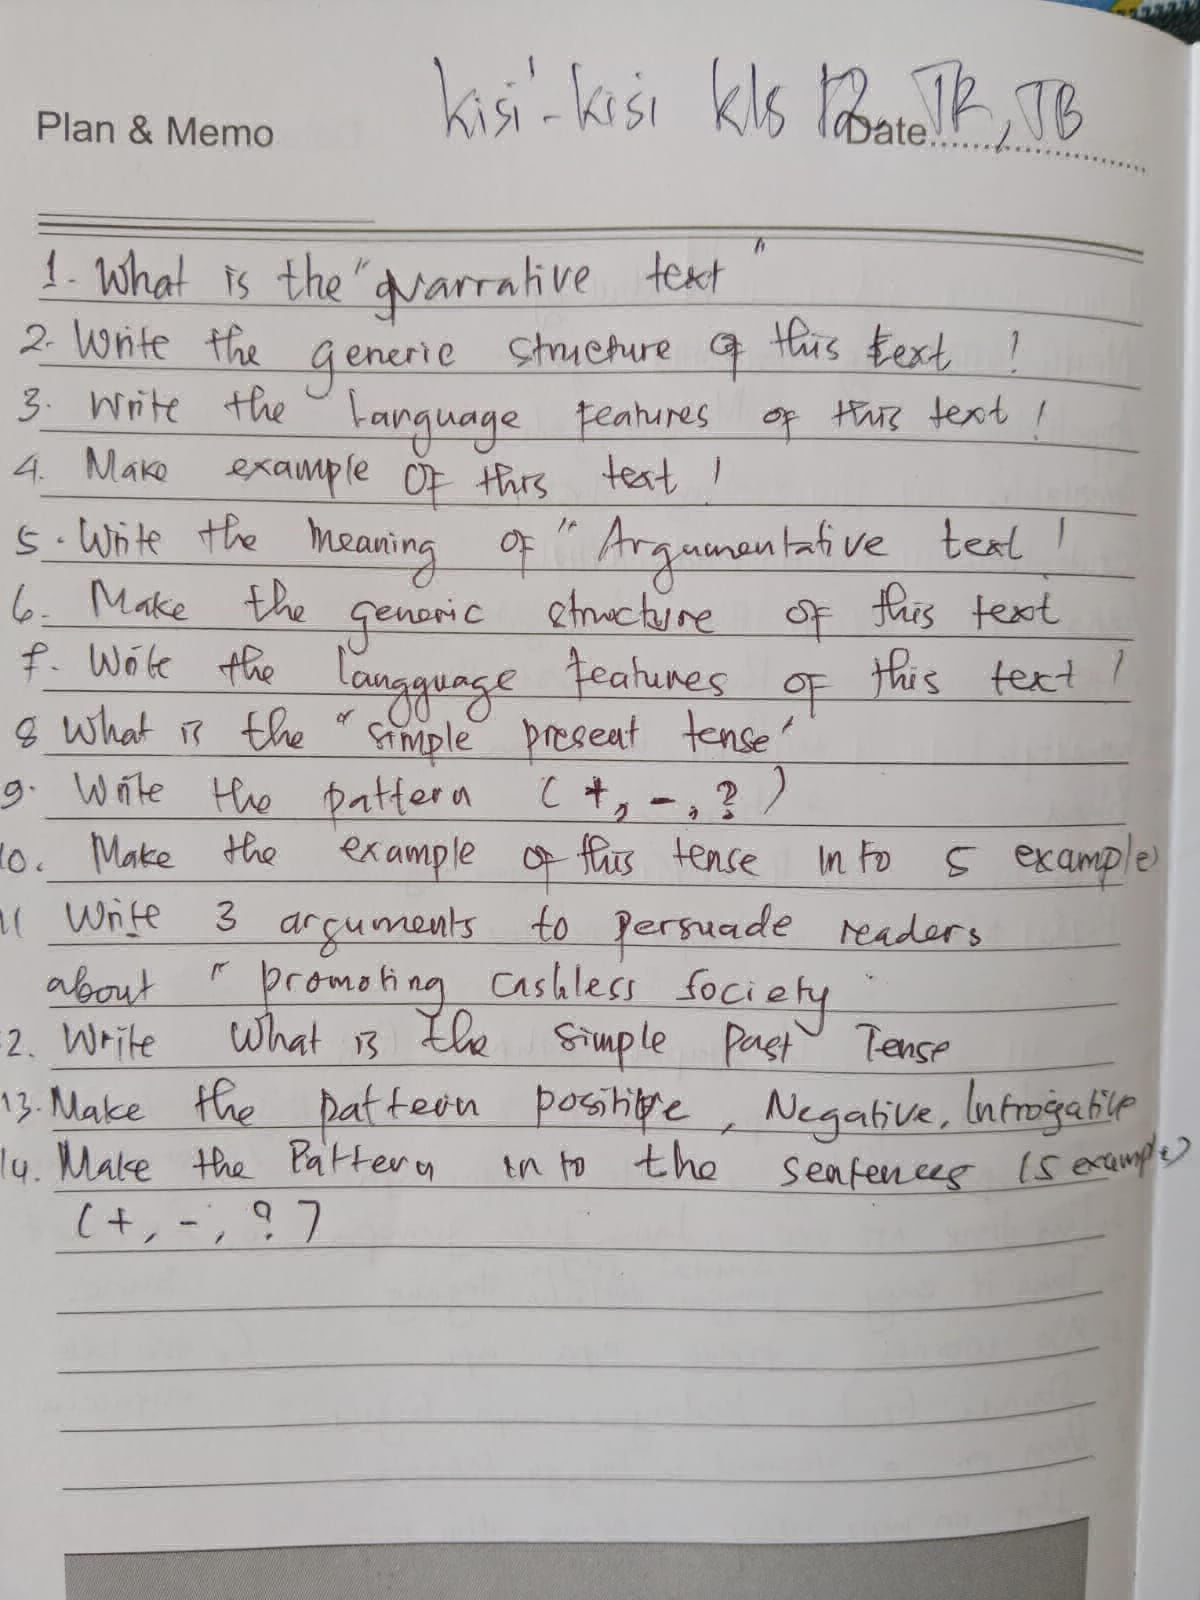 kisi-kisi kls 12. TR, JB
Plan & Memo
Date
1. What is the "Narrative text"
2. Write the generic structure of this text !
3. Write the Language features of this text !
4. Make example of this text !
5. Write the meaning of "Argumentative text !
6. Make the generic structure of this text
7. Write the langguage features of this text !
8 What is the "simple present tense"
9. Write the pattern (+, -, ?)
10. Make the example of this tense in to 5 example)
11 Write 3 arguments to persuade readers
about "promoting cashless society"
2. Write What is the simple past Tense
13. Make the pattern positive, Negative, Introgative
14. Make the Pattern in to the sentences (5 example)
(+, -, ?)